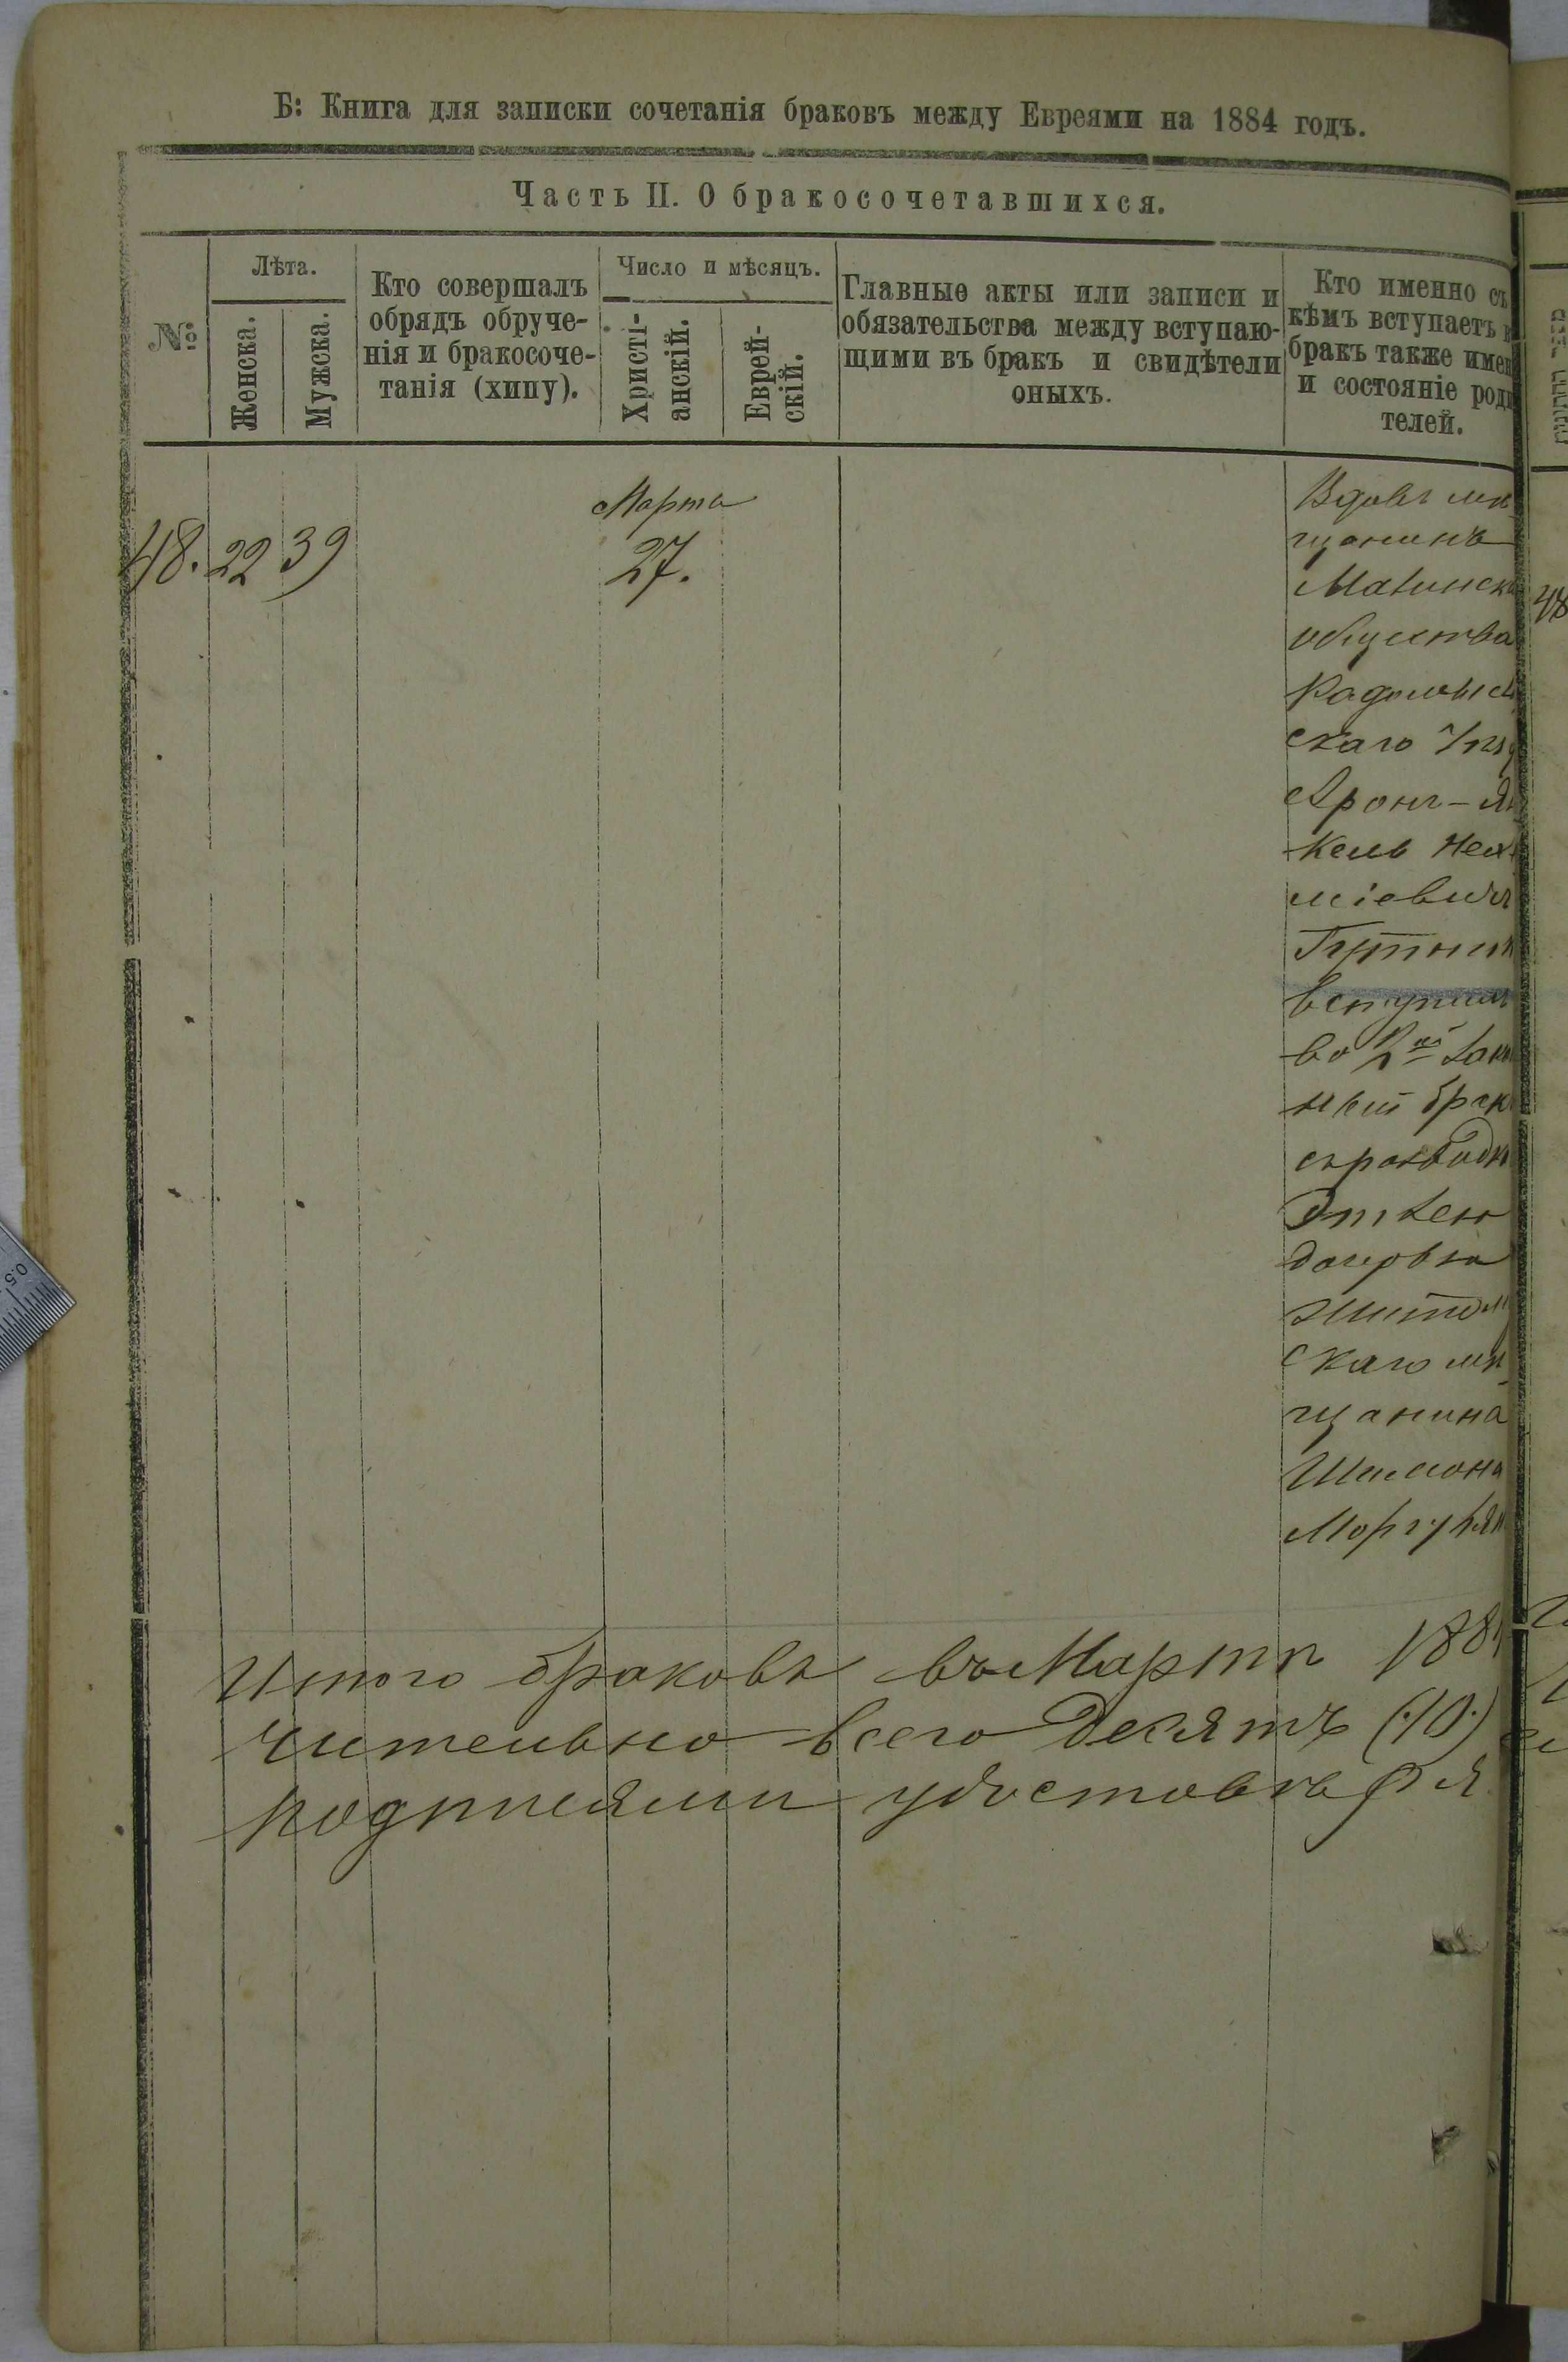 Б: Книга для записки сочетанія браковъ между Евреями на 1884 годъ.
Часть II. О бракосочетавшихся.
№
Лѣта.
Женска.
Мужска.
Кто совершалъ
обрядъ обруче-
нія и бракосоче-
танія (хипу).
Число и мѣсяцъ.
Христі-
анскій.
Еврей-
скій.
Главные акты или записи и
обязательства между вступаю-
щими въ бракъ и свидѣтели
оныхъ.
Кто именно съ
кѣмъ вступаетъ
бракъ также имен
и состояніе роди
телей.
48. 22 39
Марта
27.
Вдовъ мѣ-
щанинъ
общества
Радомысль
скаго
Аронъ-Ян
кель Нех
міевичъ
Гутник
вступилъ
во 2ой зако
ный брак
дочерью
Житом
скаго мѣ-
щанина
Шимона
48
Итого браковъ въ Мартѣ 188
чительно всего десять (10.)
подписями удостовѣр